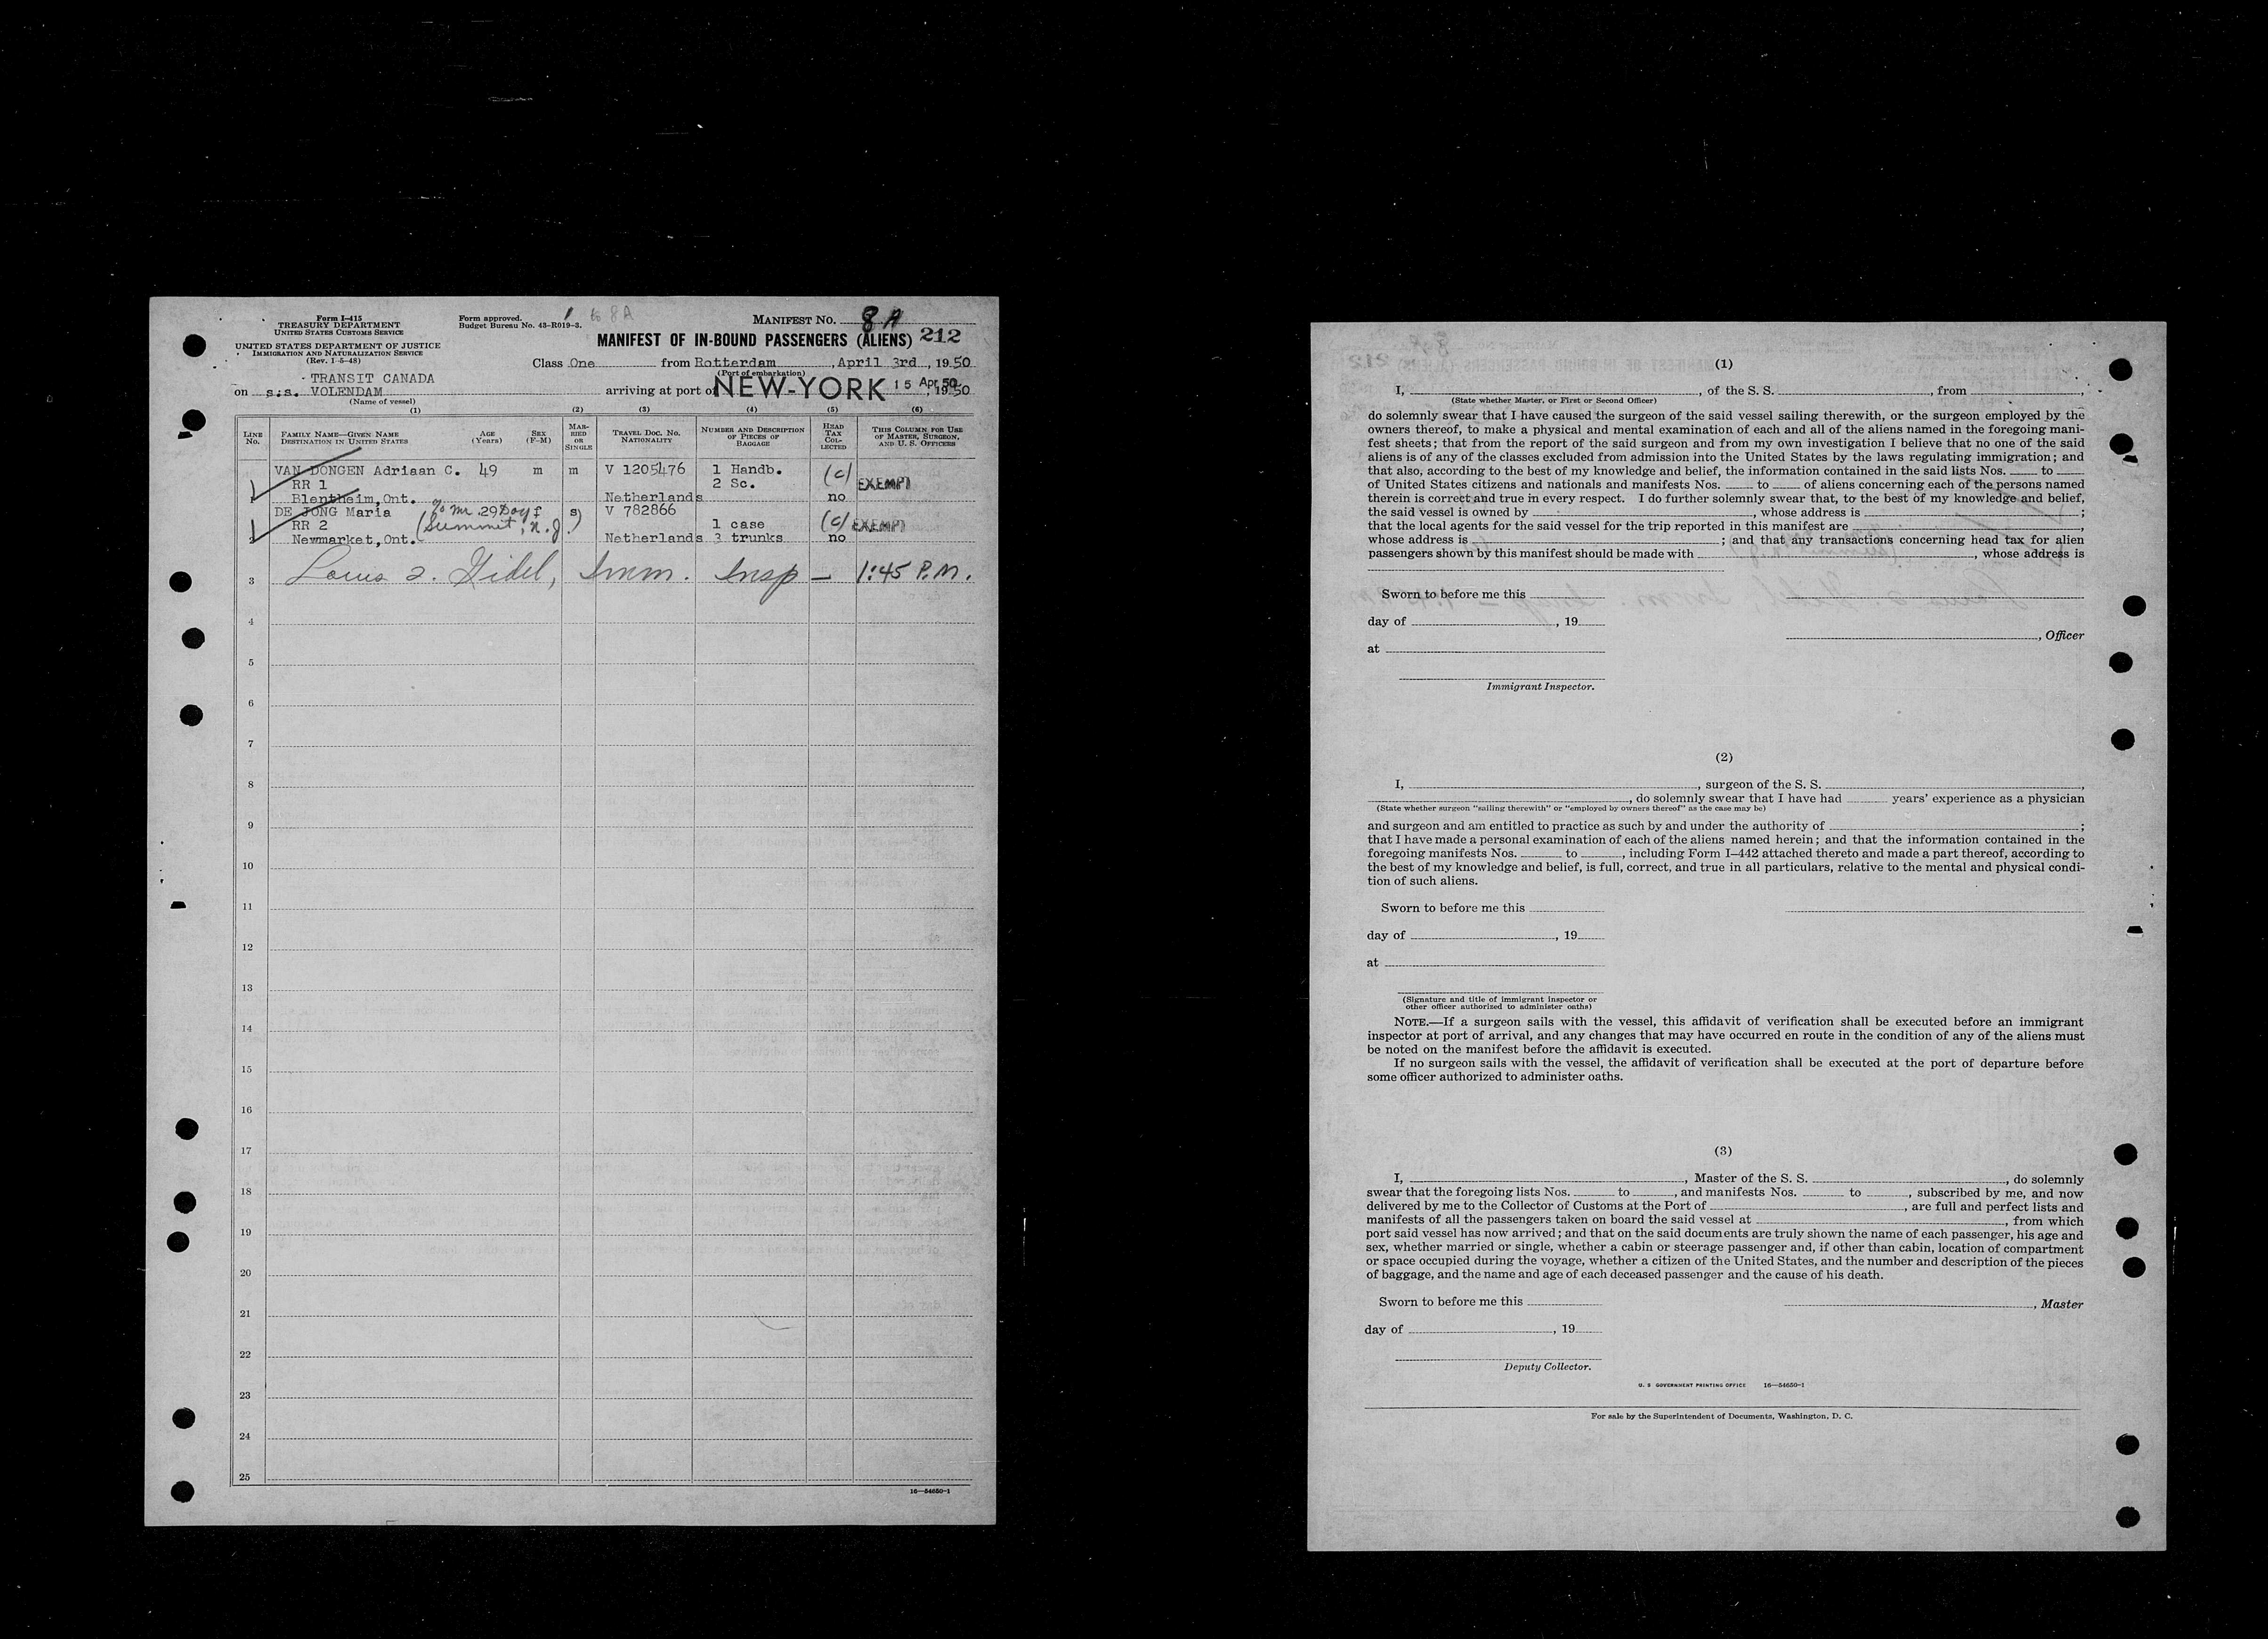 Form I-415
TREASURY DEPARTMENT
UNITED STATES CUSTOMS SERVICE
UNITED STATES DEPARTMENT OF JUSTICE
IMMIGRATION AND NATURALIZATION SERVICE
(Rev. 1-5-48)
Form approved.
Budget Bureau No. 43-R019-3.
to 8A
MANIFEST NO. 8A
MANIFEST OF IN-BOUND PASSENGERS (ALIENS) 212
Class One from Rotterdam, April 3rd, 1950
(Port of embarkation)
TRANSIT CANADA
on s.s. VOLENDAM arriving at port of NEW-YORK 15 Apr 50, 1950
(Name of vessel)
(1) (2) (3) (4) (5) (6)
LINE No. FAMILY NAME—GIVEN NAME DESTINATION IN UNITED STATES AGE (Years) SEX (F-M) MARRIED OR SINGLE TRAVEL DOC. NO. NATIONALITY NUMBER AND DESCRIPTION OF PIECES OF BAGGAGE HEAD TAX COLLECTED THIS COLUMN FOR USE OF MASTER, SURGEON, AND U. S. OFFICERS
VAN DONGEN Adriaan C. 49 m m V 1205476 1 Handb. (c)
RR 1 2 Sc. EXEMPT
Blentheim, Ont. Netherlands no
DE JONG Maria 29 f s V 782866
RR 2 (Summit, N.J.) 1 case (c) EXEMPT
Newmarket, Ont. Netherlands 3 trunks no
3 Louis Fidel, Imm. Insp — 1:45 P.M.
4
5
6
7
8
9
10
11
12
13
14
15
16
17
18
19
20
21
22
23
24
25
16—54650-1
(1)
I, , of the S. S. , from ,
(State whether Master, or First or Second Officer)
do solemnly swear that I have caused the surgeon of the said vessel sailing therewith, or the surgeon employed by the
owners thereof, to make a physical and mental examination of each and all of the aliens named in the foregoing mani-
fest sheets; that from the report of the said surgeon and from my own investigation I believe that no one of the said
aliens is of any of the classes excluded from admission into the United States by the laws regulating immigration; and
that also, according to the best of my knowledge and belief, the information contained in the said lists Nos. to
of United States citizens and nationals and manifests Nos. to of aliens concerning each of the persons named
therein is correct and true in every respect. I do further solemnly swear that, to the best of my knowledge and belief,
the said vessel is owned by , whose address is ;
that the local agents for the said vessel for the trip reported in this manifest are ,
whose address is ; and that any transactions concerning head tax for alien
passengers shown by this manifest should be made with , whose address is
Sworn to before me this
day of , 19
, Officer
at
Immigrant Inspector.
(2)
I, , surgeon of the S. S. ,
, do solemnly swear that I have had years' experience as a physician
(State whether surgeon "sailing therewith" or "employed by owners thereof" as the case may be)
and surgeon and am entitled to practice as such by and under the authority of ;
that I have made a personal examination of each of the aliens named herein; and that the information contained in the
foregoing manifests Nos. to , including Form I-442 attached thereto and made a part thereof, according to
the best of my knowledge and belief, is full, correct, and true in all particulars, relative to the mental and physical condi-
tion of such aliens.
Sworn to before me this
day of , 19
at
(Signature and title of immigrant inspector or
other officer authorized to administer oaths)
NOTE.—If a surgeon sails with the vessel, this affidavit of verification shall be executed before an immigrant
inspector at port of arrival, and any changes that may have occurred en route in the condition of any of the aliens must
be noted on the manifest before the affidavit is executed.
If no surgeon sails with the vessel, the affidavit of verification shall be executed at the port of departure before
some officer authorized to administer oaths.
(3)
I, , Master of the S. S. , do solemnly
swear that the foregoing lists Nos. to , and manifests Nos. to , subscribed by me, and now
delivered by me to the Collector of Customs at the Port of , are full and perfect lists and
manifests of all the passengers taken on board the said vessel at , from which
port said vessel has now arrived; and that on the said documents are truly shown the name of each passenger, his age and
sex, whether married or single, whether a cabin or steerage passenger and, if other than cabin, location of compartment
or space occupied during the voyage, whether a citizen of the United States, and the number and description of the pieces
of baggage, and the name and age of each deceased passenger and the cause of his death.
Sworn to before me this
, Master
day of , 19
Deputy Collector.
U. S GOVERNMENT PRINTING OFFICE 16—54650-1
For sale by the Superintendent of Documents, Washington, D. C.